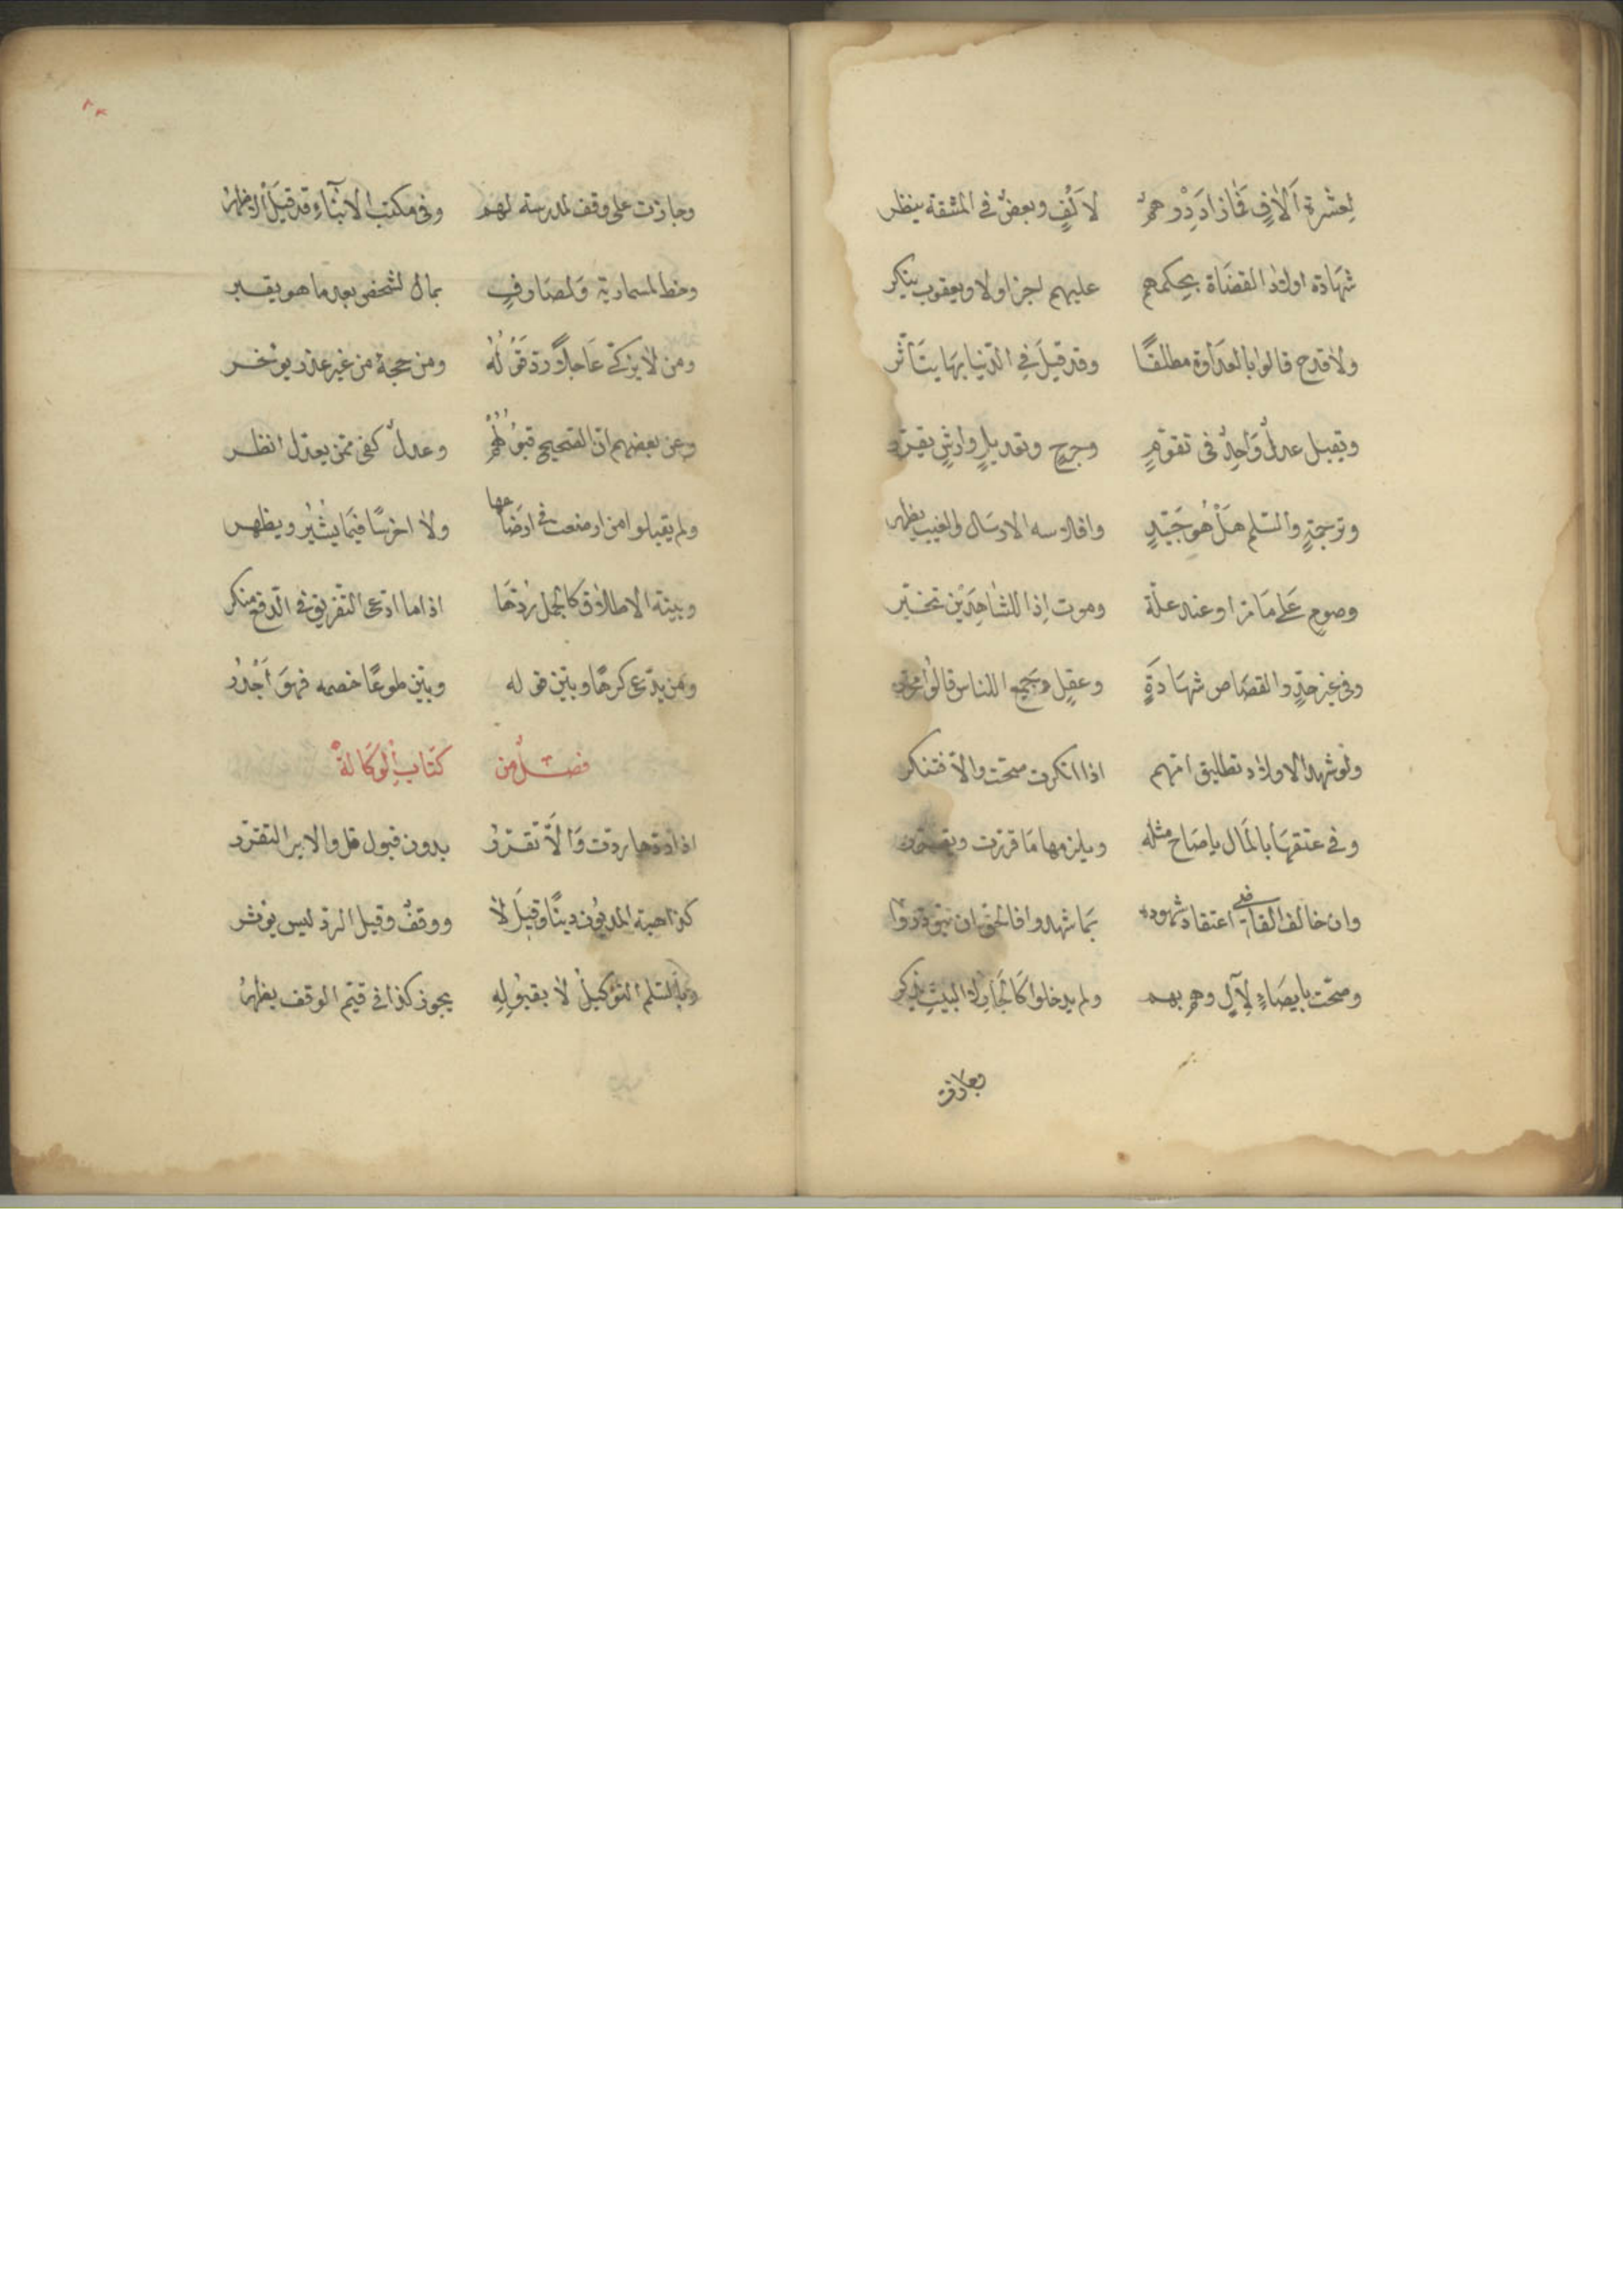 لعشرة آلاف فما زاد ذو هم لالف وبعض في المشقة ينظر
شهادة اولاد القضاة بحكمهم عليهم اجز اولا ويعقوب ينكر
ولا قدح قالوا بالعداوة مطلقًا وقد قيل في الدنيا بها يتأثر
ويقبل عدل واحد في تقوم وجرح وتعديل وارش يقدر
وترجمة والسلم هل هو جيد وافلاسه الارسال والعيب يظهر
وصوم على ما مر او عند علة وموت اذا للشاهدين تخبر
وفي غير حد والقصاص شهادة وعقل جميع الناس قالوا
ولو شهد الاولاد تطليق امهم اذا انكرت صحت والا فتنكر
وفي عتقها بالمال يا صاح مثله ويلزمها ما قررت
وان خالف القاضي اعتقاد شهوده بما شهدوا فالحق ان
وصحت بايصاء لآل وهم بهم ولم يدخلوا كالجار لا البيت يذكر
وجازت
٨٣
وجازت على وقف لمدرسة لهم وفي مكتب الابناء قد قيل الاظهر
وخط لسمسارية ولصارف بمال لشخص بعد ما هو يقبر
ومن لا يزكى عاجلا رد قوله ومن حجة من غير عذر يؤخر
وعن بعضهم ان الصحيح قبولهم وعدل كفى ممن يعدل انظر
ولم يقبلوا من ارضعت في ارضاعها ولا اخرسًا فيما يشير ويظهر
وبينة الاطلاق كالجمل ردها اذا ما ادعى التفريق في الدفع منكر
ومن يدعى كرهًا وبين قوله وبين طوعًا خصمه فهو اجدر
فصل من كتاب الوكالة
اذا ردها ردت والا تقرر بدون قبول قل والابرا التقرر
كذا هبة المديون دينًا وقيل لا ووقف وقيل الرد ليس يؤثر
وبالسلم التوكيل لا بقبوله يجوز كذا في قيم الوقف يظهر